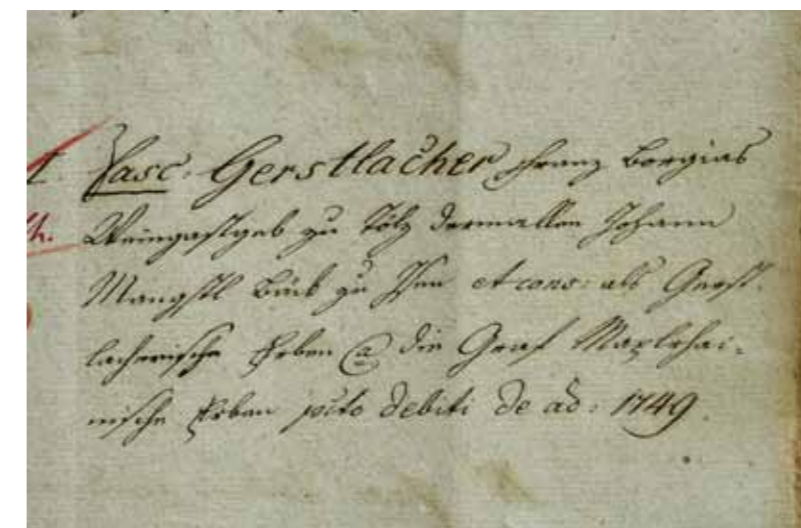 1. Fasc: Gerstlacher Franz Borgias
Weingastgeb zu Tölz dermallen Johann
Mangstl Bäck zu Isen et cons: als Gerst-
lacherische Erben @ die Graf Maxlrhai-
nische Erben pcto debiti de aõ: 1749.